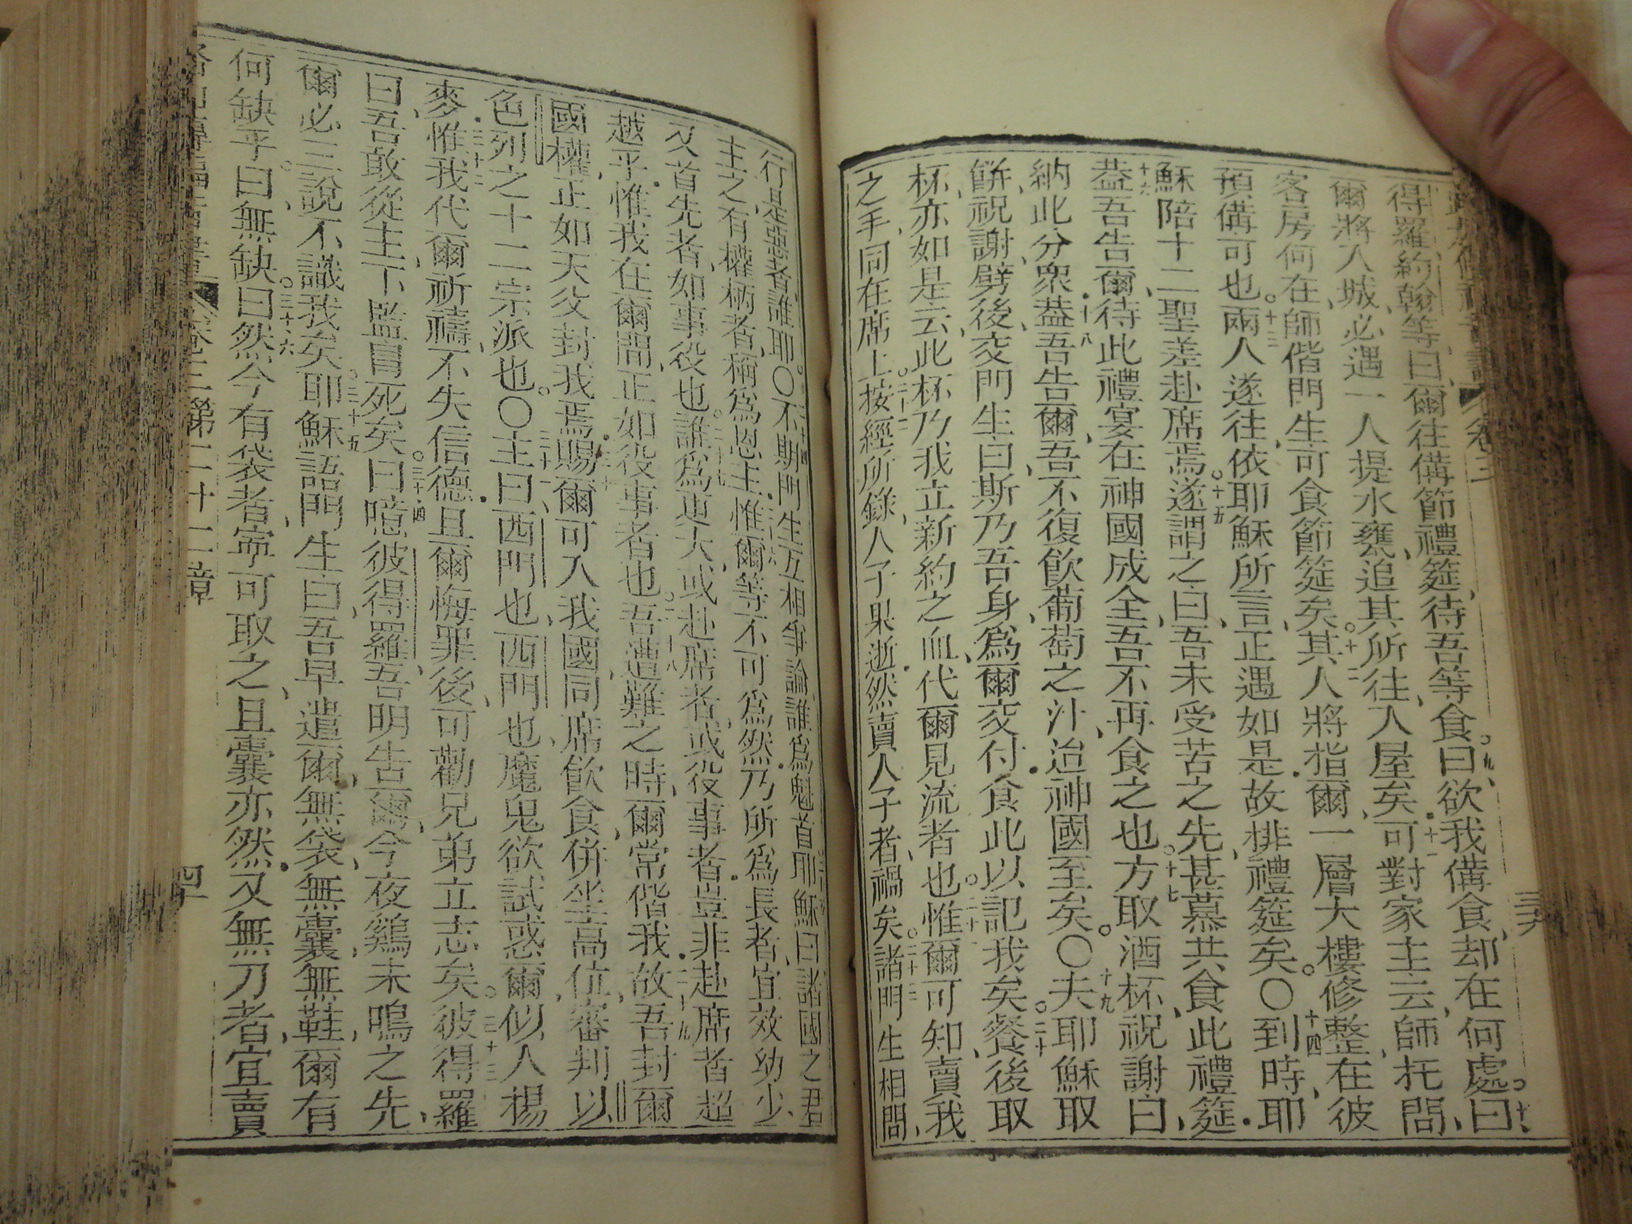 得羅約翰等曰爾往備節禮筵待吾等食曰欲我備食却在何處曰
爾將入城必遇一人提水甕追其所往入屋矣可對家主云師托問
客房何在師偕門生可食節筵矣其人將指爾一層大樓修整在彼
預備可也兩人遂往依耶穌所言正遇如是故排禮筵矣〇到時耶
穌陪十二聖差赴席焉遂謂之曰吾未受苦之先甚慕共食此禮筵
葢吾告爾待此禮宴在神國成全吾不再食之也方取酒杯祝謝曰
納此分衆葢吾告爾吾不復飲葡萄之汁迨神國至矣〇夫耶穌取
餅祝謝劈後交門生曰斯乃吾身為爾交付食此以記我矣餐後取
杯亦如是云此杯乃我立新約之血代爾見流者也惟爾可知賣我
之手同在席上按經所錄人子果逝然賣人子者禍矣諸門生相問
行是惡者誰耶〇不期門生互相爭論誰為魁首耶穌曰諸國之君
主之有權柄者稱為恩主惟爾等不可為然乃所為長者宜效幼少
又首先者如事役也誰為更大或赴席者或役事者豈非赴席者超
越乎惟我在爾間正如役事者也吾遭難之時爾常偕我故吾封爾
國權正如天父封我焉賜爾可入我國同席飲食併坐高位審判以
色列之十二宗派也〇主曰西門也西門也魔鬼欲試惑爾似人揚
麥惟我代爾祈禱不失信德且爾悔罪後可勸兄弟立志矣彼得羅
曰吾敢從主下監冒死矣曰噫彼得羅吾明告爾今夜鷄未鳴之先
爾必三說不識我矣耶穌語門生曰吾早遣爾無袋無囊無鞋爾有
何缺乎曰無缺曰然今有袋者寧可取之且囊亦然又無刀者宜賣
第二十二章